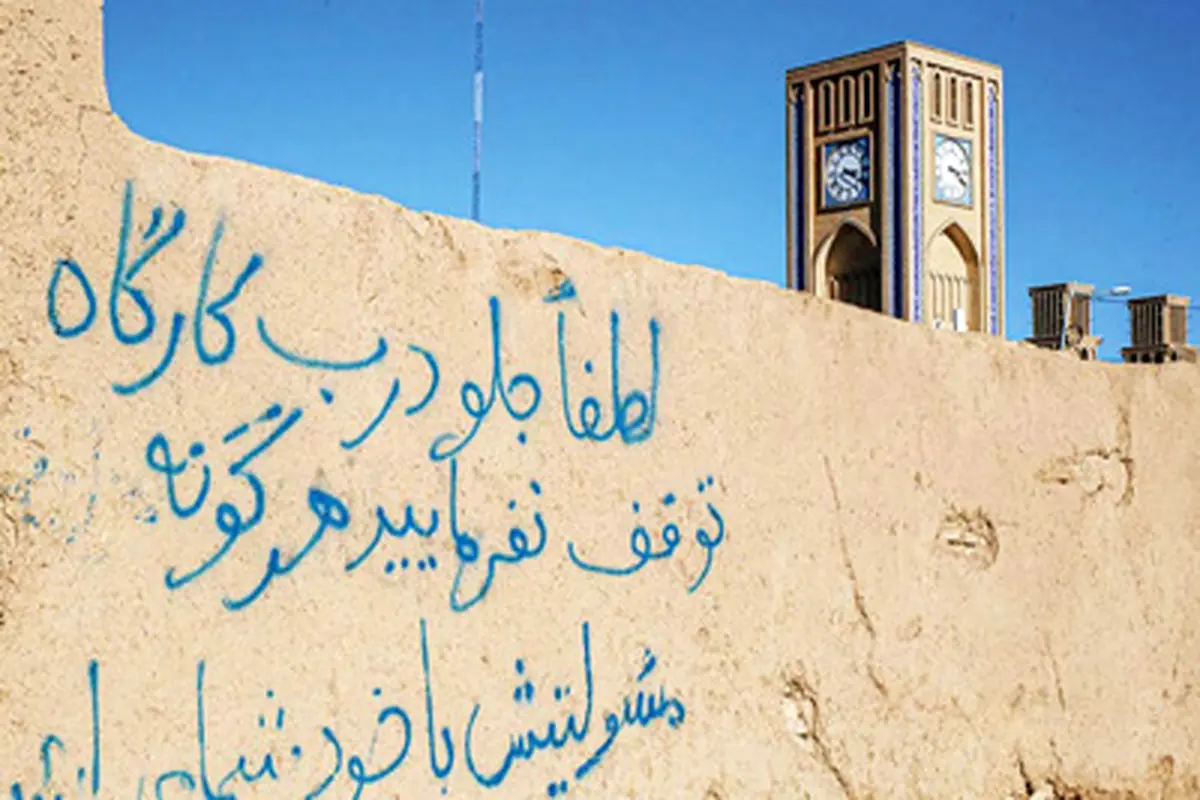 لطفاً جلو درب کارگاه
توقف نفرمایید هر گونه
مسولتیش با خود شما